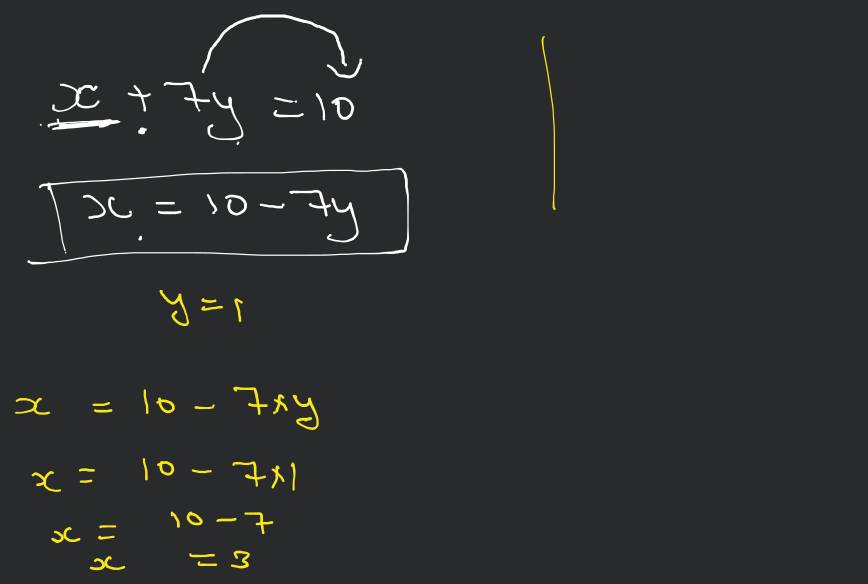 x + 7y = 10
x = 10 - 7y
y = 1
x = 10 - 7×y
x = 10 - 7×1
x = 10 - 7
x = 3